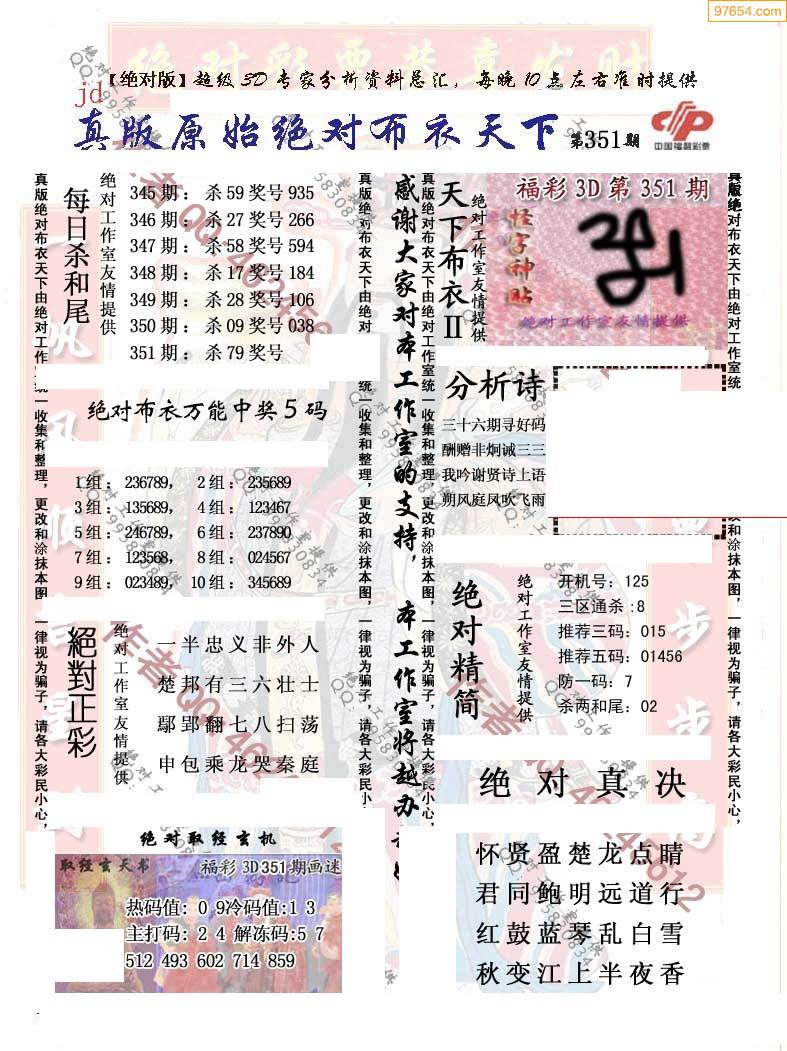 97654.com
【绝对版】超级3D专家分析资料总汇，每晚10点左右准时提供
jd
真版原始绝对布衣天下 第351期
中国福利彩票
每日杀和尾
绝对工作室友情提供
345期：杀59奖号935
346期：杀27奖号266
347期：杀58奖号594
348期：杀17奖号184
349期：杀28奖号106
350期：杀09奖号038
351期：杀79奖号
绝对布衣万能中奖5码
1组：236789，2组：235689
3组：135689，4组：123467
5组：246789，6组：237890
7组：123568，8组：024567
9组：023489，10组：345689
絕對正彩
绝对工作室友情提供
一半忠义非外人
楚邦有三六壮士
鄢郢翻七八扫荡
申包乘龙哭秦庭
绝对取经玄机
取经玄天书
福彩3D351期画迷
热码值: 0 9冷码值:1 3
主打码: 2 4 解冻码:5 7
512 493 602 714 859
真版绝对布衣天下由绝对工作室统一收集和整理，更改和涂抹本图，一律视为骗子，请各大彩民小心，
真版绝对布衣天下由绝对
统一收集和整理，更改和涂抹本图，一律视为骗子，请各大彩民小
感谢大家对本工作室的支持，本工作室将越办
真版绝对布衣天下由绝对工作室统一收集和整理，更改和涂抹本图，一律视为骗子，请各大彩民小心，
天下布衣II
绝对工作室友情提供
福彩3D第351期
怪字神贴
绝对工作室友情提供
分析诗
三十六期寻好码
酬赠非炯诚三三
我吟谢贤诗上语
朔风庭凤吹飞雨
绝对精简
绝对工作室友情提供
开机号：125
三区通杀:8
推荐三码：015
推荐五码：01456
防一码：7
杀两和尾：02
绝对真决
怀贤盈楚龙点睛
君同鲍明远道行
红鼓蓝琴乱白雪
秋变江上半夜香
真版绝对布衣天下由绝对工作室统
改和涂抹本图，一律视为骗子，请各大彩民小心，